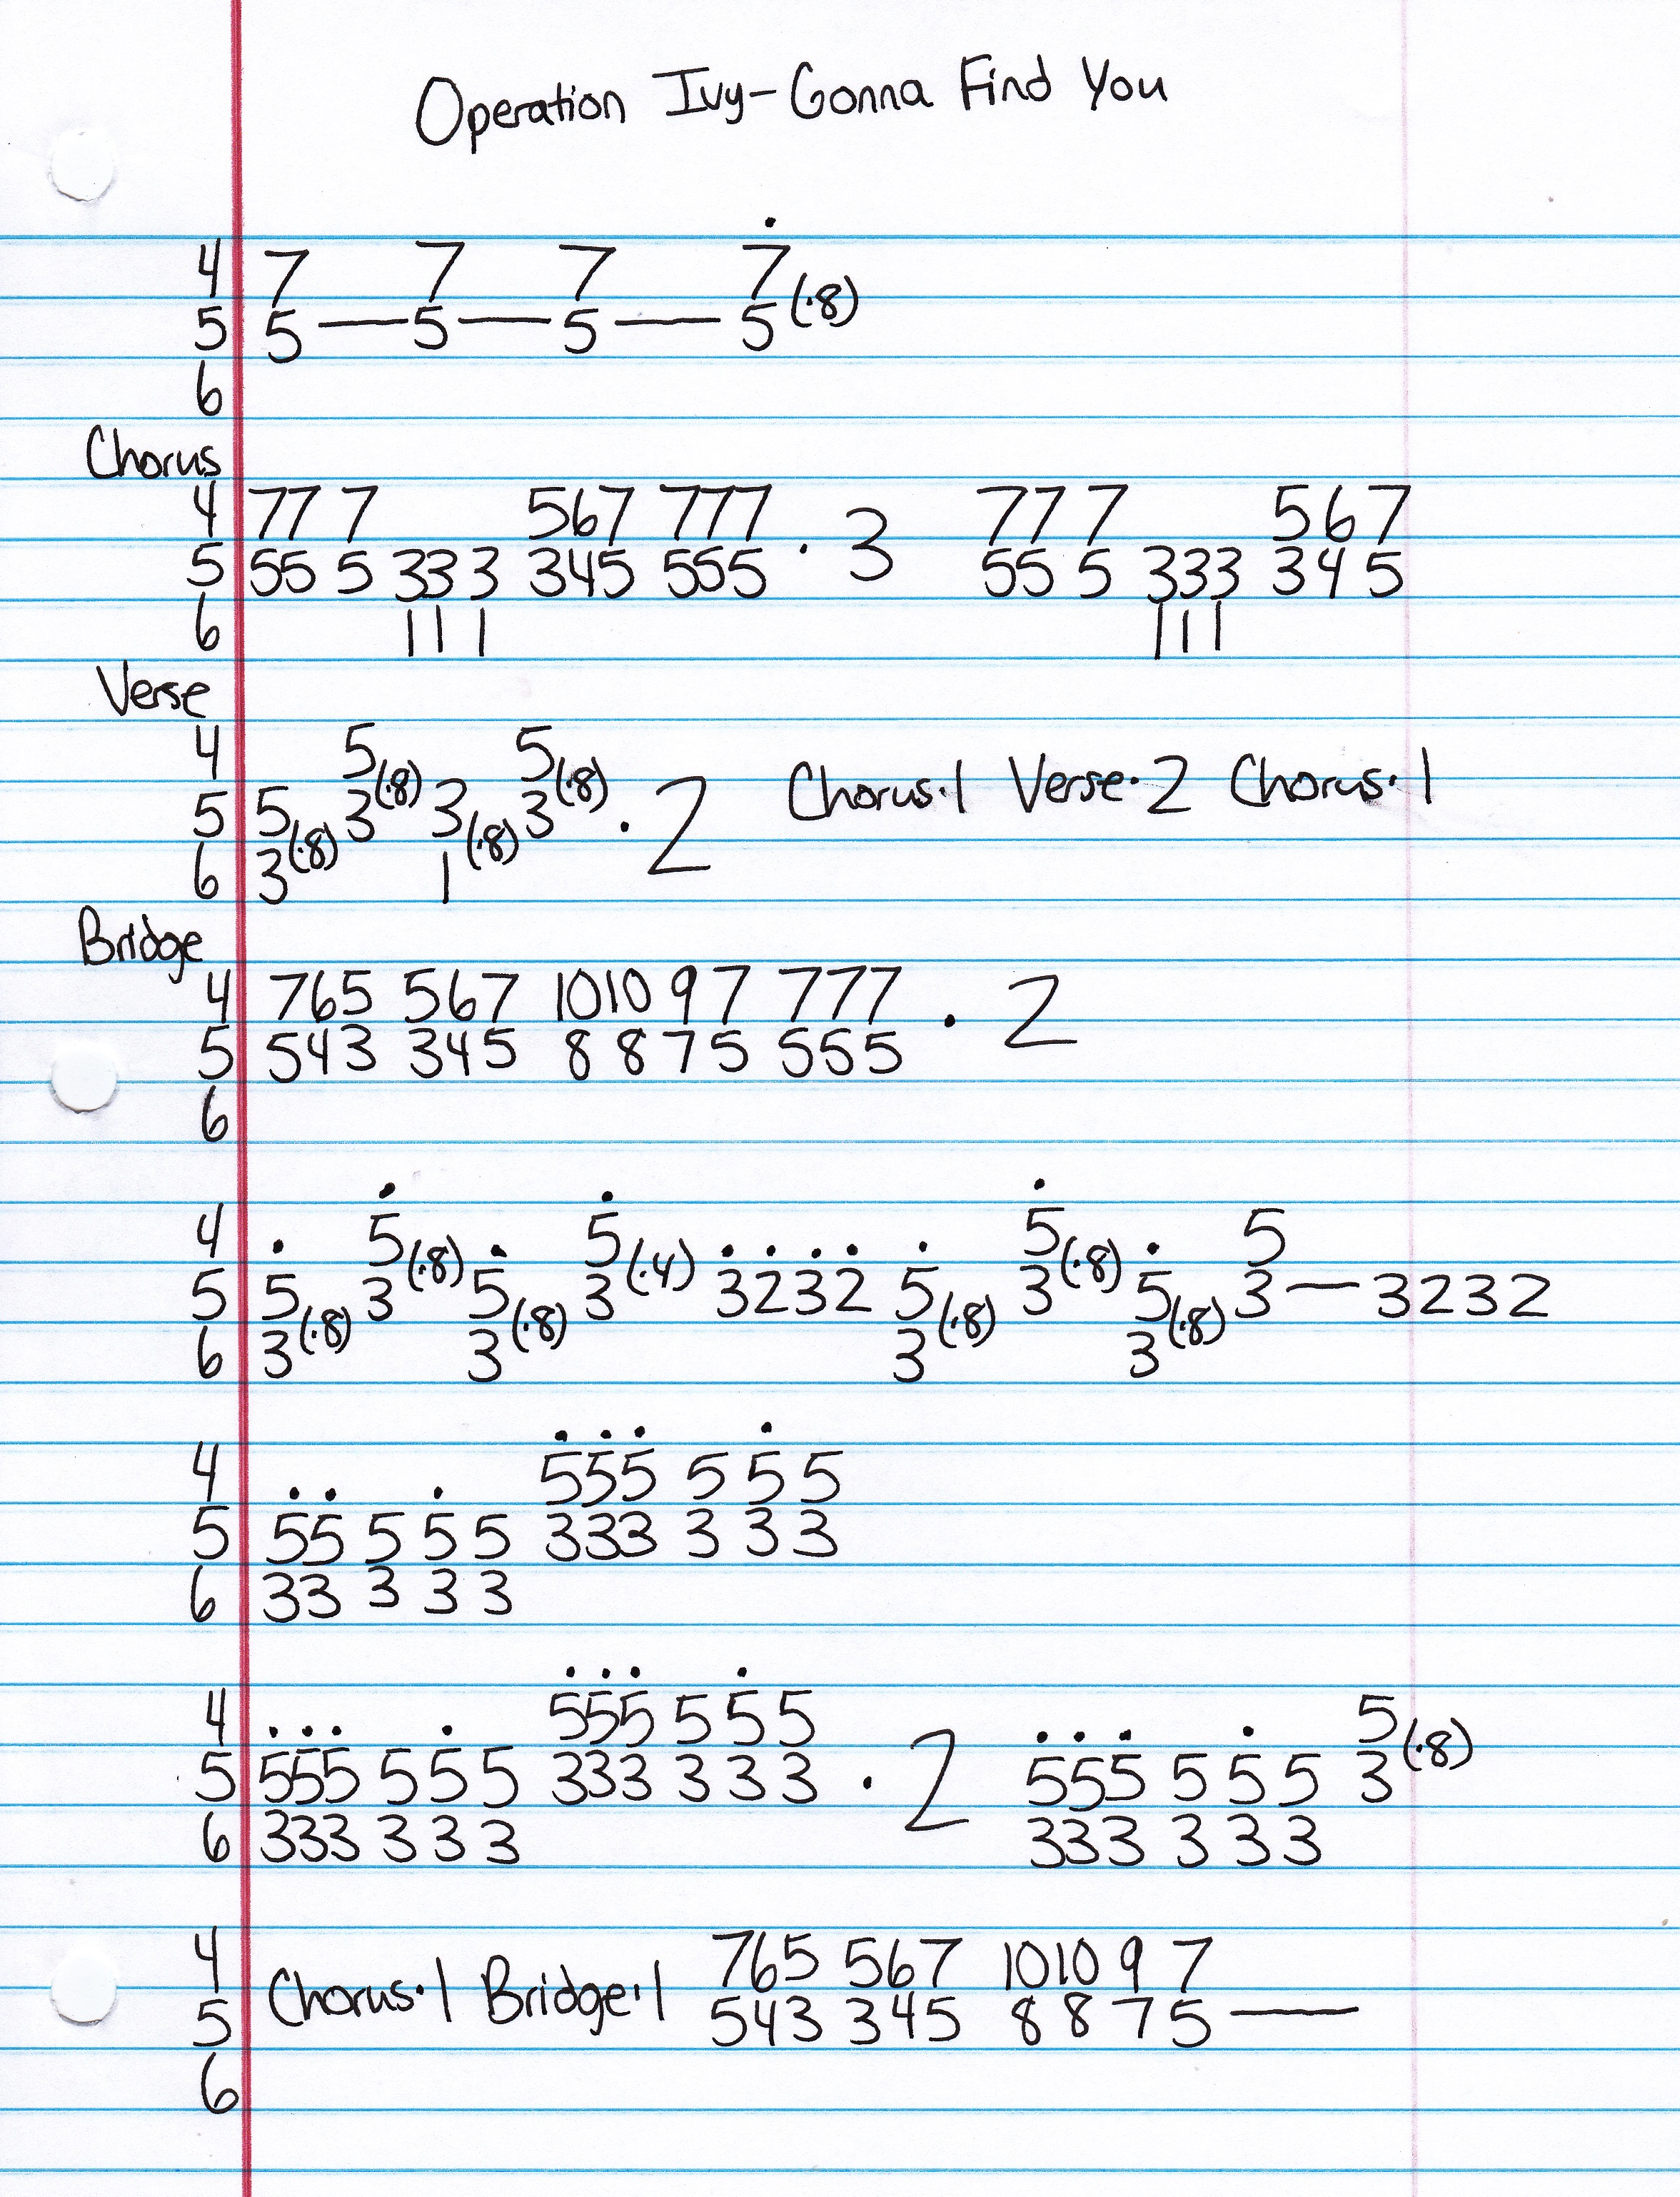 Operation Ivy-Gonna Find You
4 7 7 7 7
5 5 — 5 — 5 — 5 (·8)
6
Chorus
4 77 7 567 777 777 567
5 55 5 333 345 555 · 3 55 5 333 345
6 111 111
Verse
4 5 5
5 5 3(·8) 3 3(·8) · 2 Chorus·1 Verse·2 Chorus·1
6 3(·8) 1(·8)
Bridge
4 765 567 1010 9 7 777
5 543 345 8 8 7 5 555 · 2
6
4 5 5 5 5
5 5 3(·8) 5 3(·4) 3232 5 3(·8) 5 3 — 3232
6 3(·8) 3(·8) 3(·8) 3(·8)
4 555 5 5 5
5 55 5 5 5 333 3 3 3
6 33 3 3 3
4 555 5 5 5 5
5 555 5 5 5 333 3 3 3 · 2 555 5 5 5 3(·8)
6 333 3 3 3 333 3 3 3
4 765 567 1010 9 7
5 Chorus·1 Bridge·1 543 345 8 8 7 5 —
6